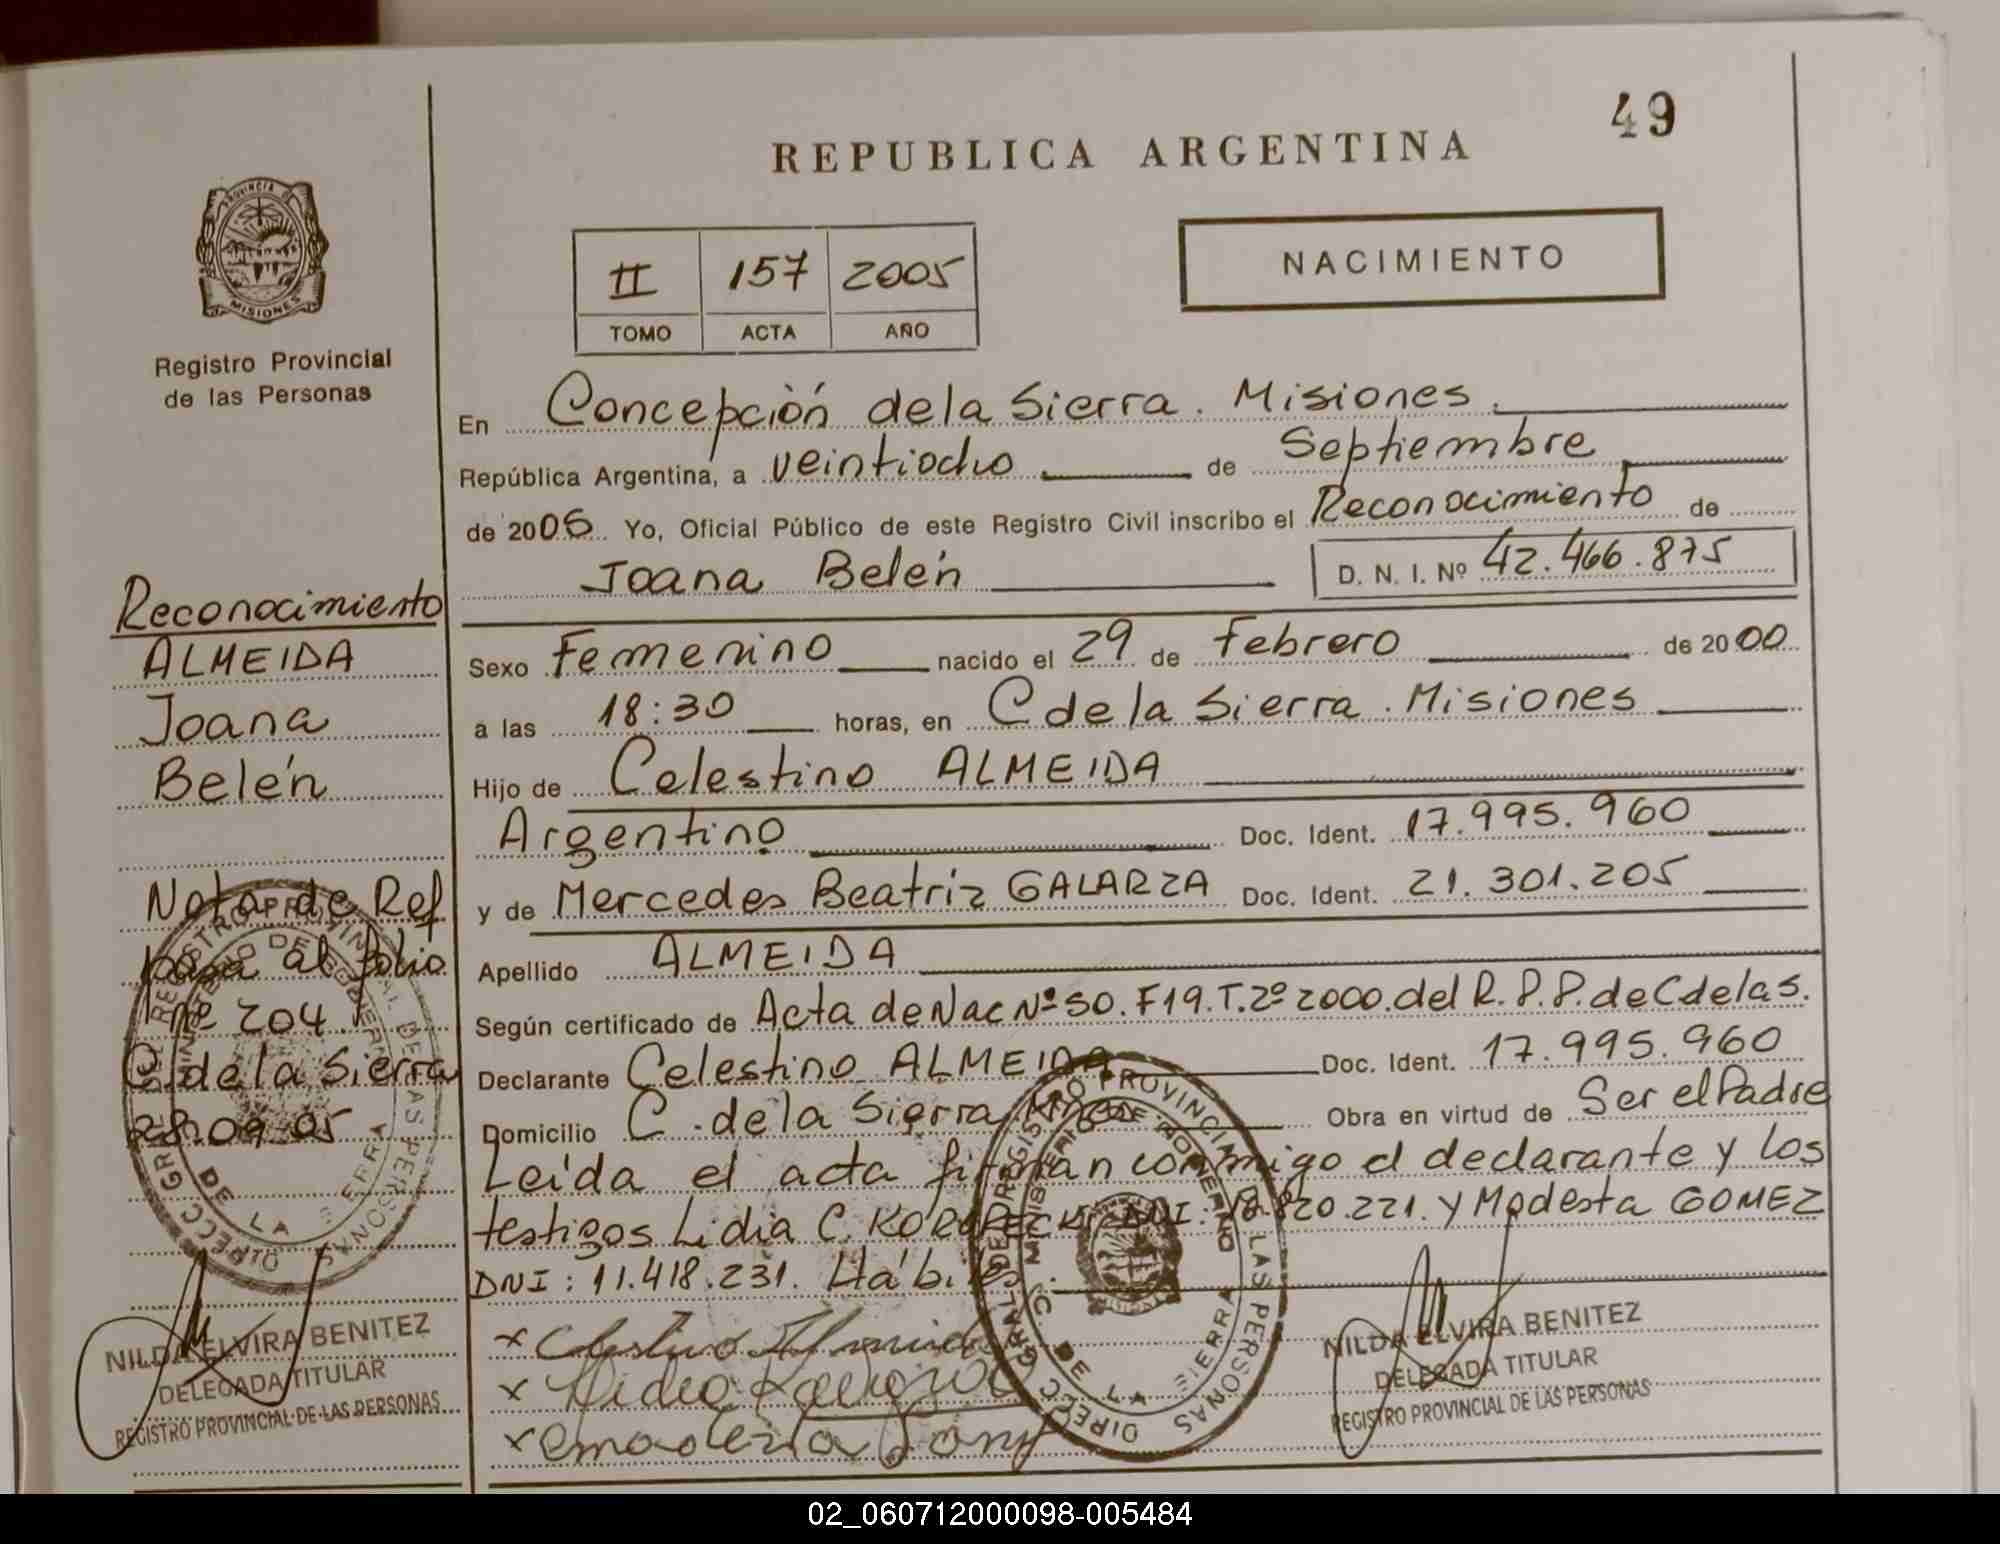 49
REPUBLICA ARGENTINA
PROVINCIA DE
MISIONES
Registro Provincial
de las Personas
NACIMIENTO
II 157 2005
TOMO ACTA AÑO
En Concepción de la Sierra. Misiones.
República Argentina, a veintiocho de Septiembre
de 2005 Yo, Oficial Público de este Registro Civil inscribo el Reconocimiento de
Joana Belén D. N. I. Nº 42.466.875
Sexo Femenino nacido el 29 de Febrero de 2000
a las 18:30 horas, en C de la Sierra. Misiones
Hijo de Celestino ALMEIDA
Argentino Doc. Ident. 17.995.960
y de Mercedes Beatriz GALARZA Doc. Ident. 21.301.205
Apellido ALMEIDA
Según certificado de Acta de Nac Nº 50. F19. T. 2º 2000. del R. P. P. de C de la S.
Declarante Celestino ALMEIDA Doc. Ident. 17.995.960
Domicilio C. de la Sierra, Mnes Obra en virtud de Ser el Padre
Leída el acta firman conmigo el declarante y los
testigos Lidia C. DNI: 18.820.221. y Modesta GOMEZ
DNI: 11.418.231. Hábiles.
Reconocimiento
ALMEIDA
Joana
Belén
Nota de Ref
pasa al folio
nº 204.
C. de la Sierra
28.09.05
DIRECC. GRAL. DEL REGISTRO PROVINCIAL DE LAS PERSONAS
MINISTERIO DE GOBIERNO
C. DE LA SIERRA
NILDA ELVIRA BENITEZ
DELEGADA TITULAR
REGISTRO PROVINCIAL DE LAS PERSONAS
DIRECC. GRAL. DEL REGISTRO PROVINCIAL DE LAS PERSONAS
MINISTERIO DE GOBIERNO
C. DE LA SIERRA
NILDA ELVIRA BENITEZ
DELEGADA TITULAR
REGISTRO PROVINCIAL DE LAS PERSONAS
02_060712000098-005484